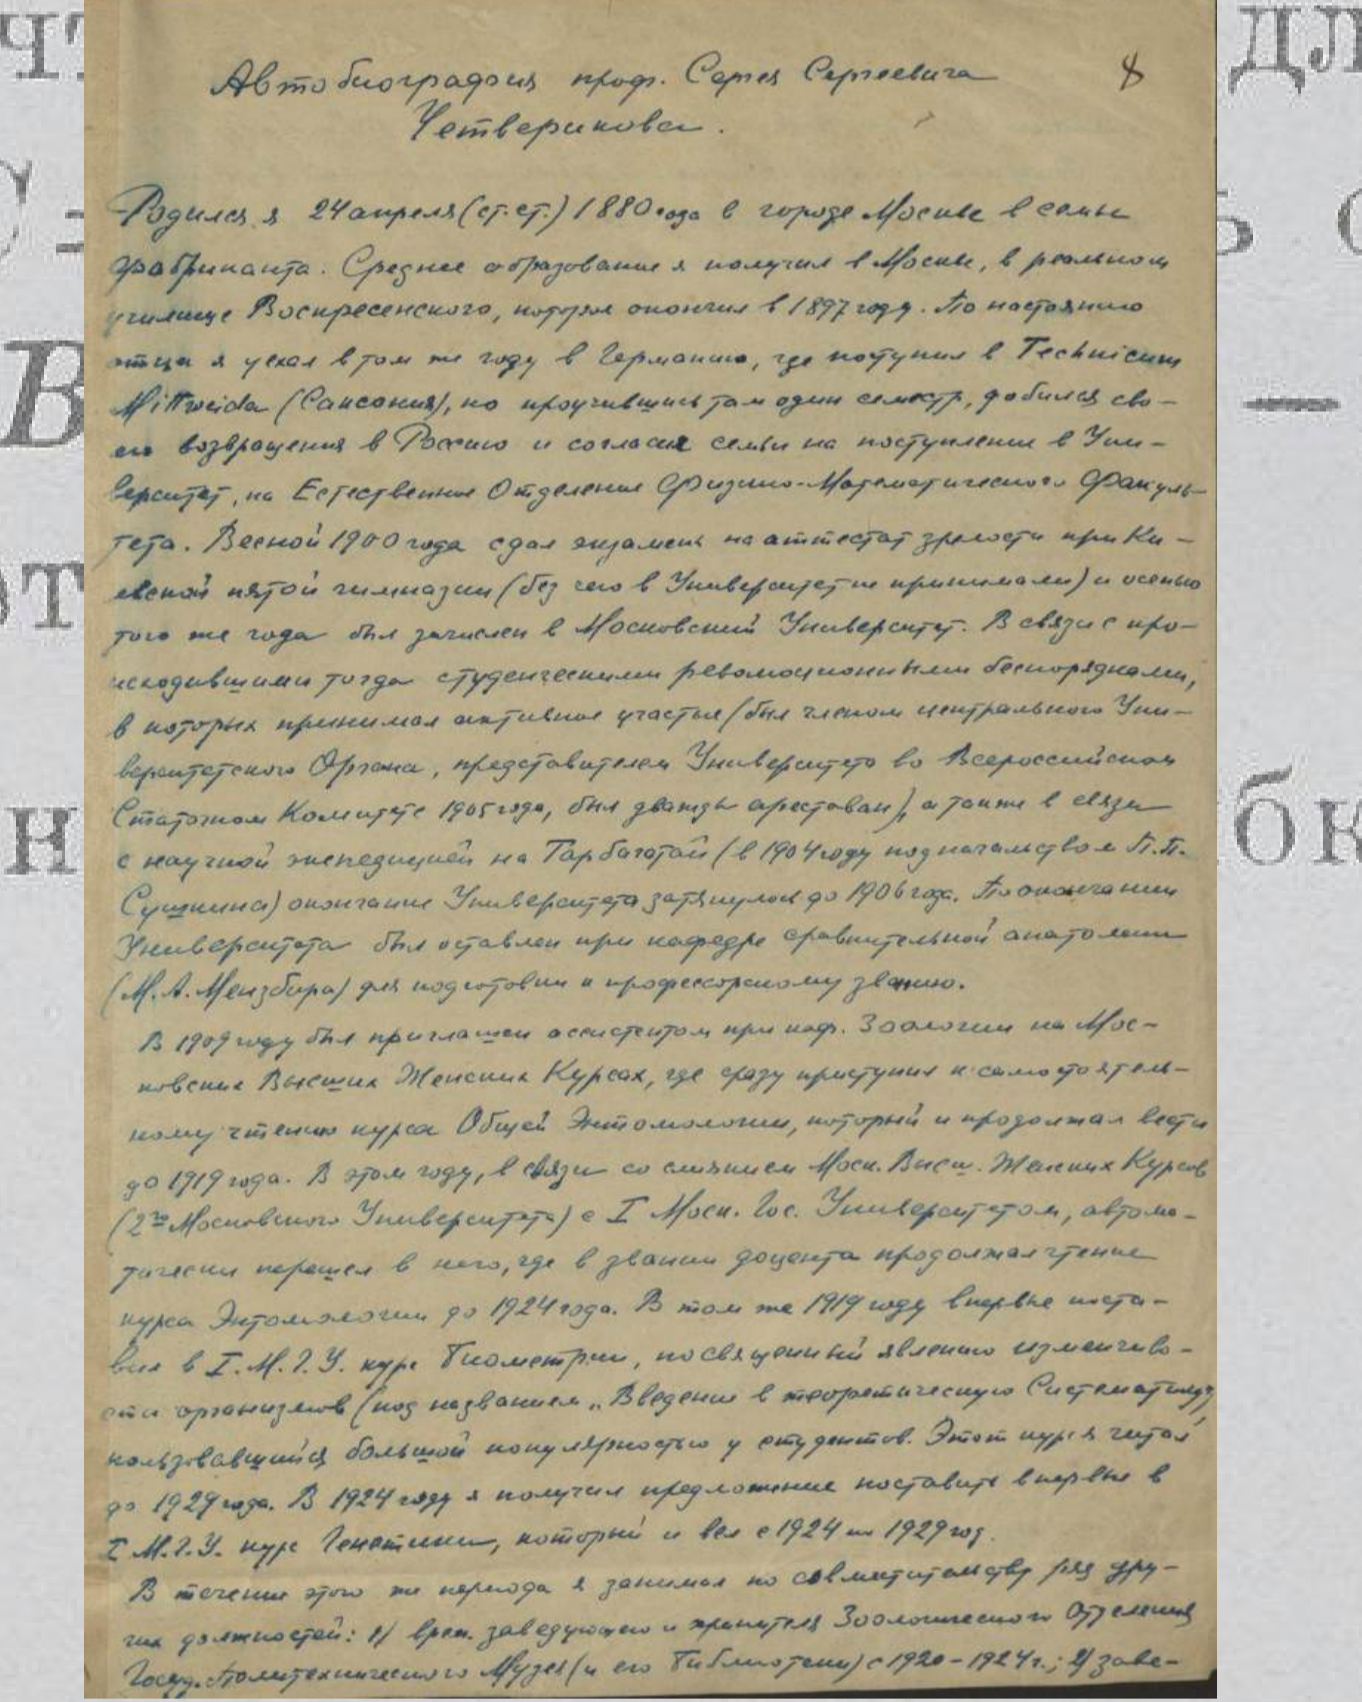 Автобиография проф. Сергея Сергеевича
8
Четверикова.
Родился я 24 апреля (ст. ст.) 1880 года в городе Москве в семье
фабриканта. Среднее образование я получил в Москве, в реальном
училище Воскресенского, которое окончил в 1897 году. По настоянию
отца я уехал в том же году в Германию, где поступил в Technicum
Mittweida (Саксония), но проучившись там один семестр, добился сво-
его возвращения в Россию и согласия семьи на поступление в Уни-
верситет, на Естественное Отделение Физико-Математического Факуль-
тета. Весной 1900 года сдал экзамен на аттестат зрелости при Ки-
евской пятой гимназии (без чего в Университет не принимали) и осенью
того же года был зачислен в Московский Университет. В связи с про-
исходившими тогда студенческими революционными беспорядками,
в которых принимал активное участье (был членом центрального Уни-
верситетского Органа, представителем Университета во Всероссийском
Стачечном Комитете 1905 года, был дважды арестован), а также в связи
с научной экспедицией на Тарбагатай (в 1904 году под начальством П.П.
Сушкина) окончание Университета затянулось до 1906 года. По окончании
Университета был оставлен при кафедре сравнительной анатомии
(М.А. Мензбира) для подготовки к профессорскому званию.
В 1909 году был приглашен ассистентом при каф. Зоологии на Мос-
ковские Высших Женских Курсах, где сразу приступил к самостоятель-
ному чтению курса Общей Энтомологии, который и продолжал вести
до 1919 года. В этом году, в связи со слиянием Моск. Высш. Женских Курсов
(2го Московского Университета) с I Моск. Гос. Университетом, автома-
тически перешел в него, где в звании доцента продолжал чтение
курса Энтомологии до 1924 года. В том же 1919 году впервые поста-
вил в I. М. Г. У. курс Биометрии, посвященный явлению изменчиво-
сти организмов (под названием „Введение в теоретическую Систематику)
пользовавшийся большой популярностью у студентов. Этот курс я читал
до 1929 года. В 1924 году я получил предложение поставить впервые в
I М. Г. У. курс Генетики, который и вел с 1924 по 1929 год.
В течение этого же периода я занимал по совместительству ряд дру-
гих должностей: 1/ врем. заведующего и хранителя Зоологического Отделения
Госуд. Политехнического Музея (и его Библиотеки) с 1920-1924 г.; 2/ заве-